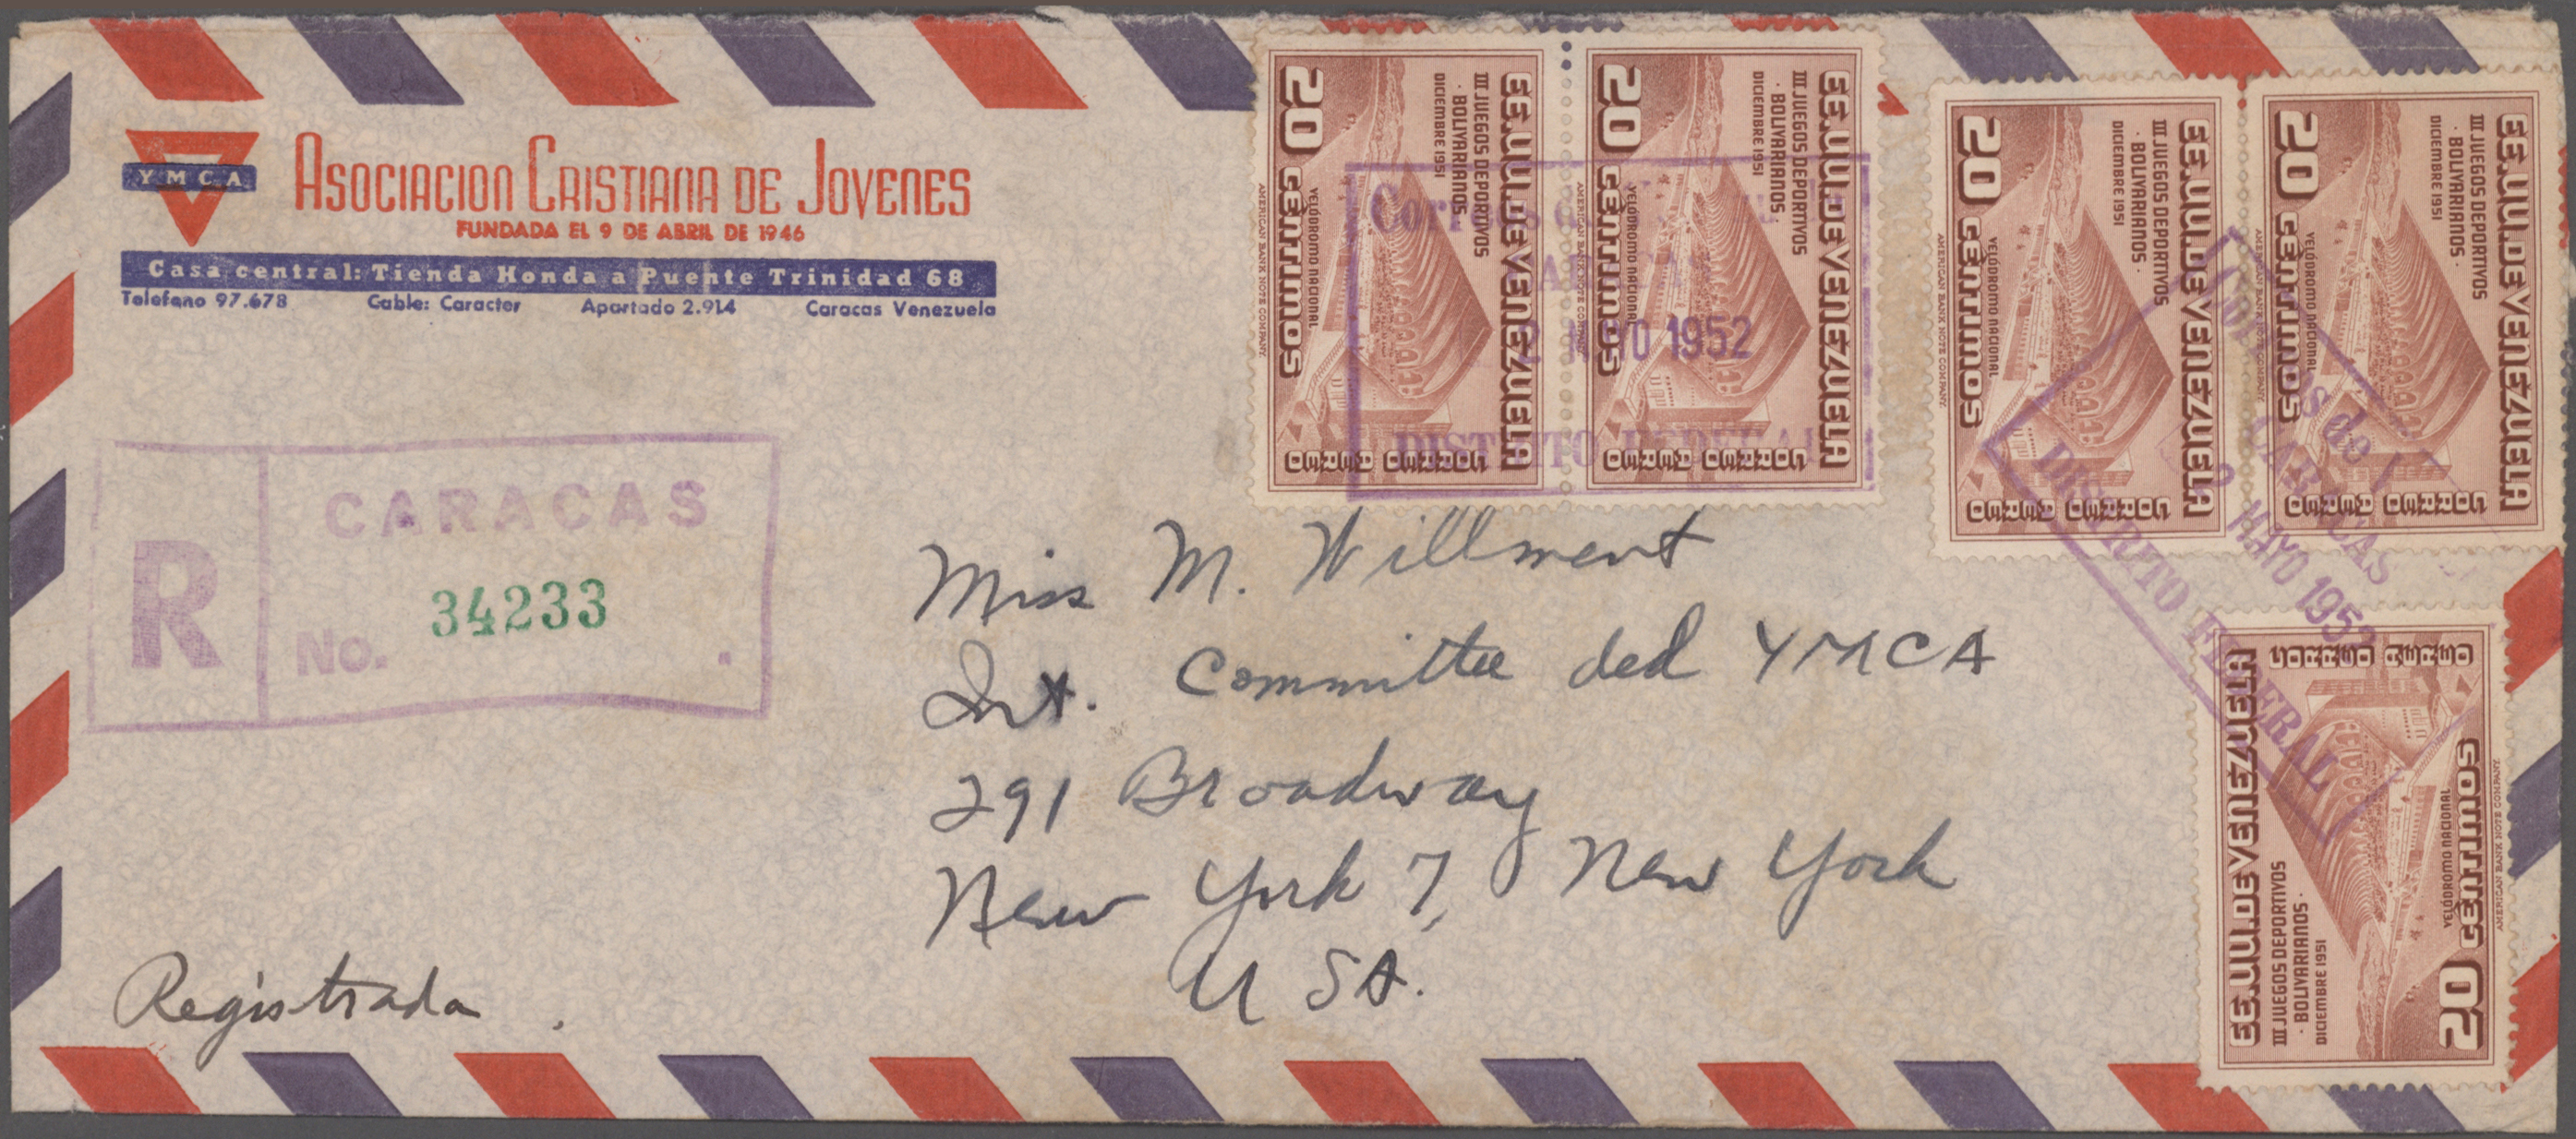 YMCA
ASOCIACION CRISTIANA DE JOVENES
FUNDADA EL 9 DE ABRIL DE 1946
Casa central: Tienda Honda a Puente Trinidad 68
Telefono 97.678 Cable: Caracter Apartado 2.914 Caracas Venezuela
EE.UU. DE VENEZUELA
III JUEGOS DEPORTIVOS
· BOLIVARIANOS ·
DICIEMBRE 1951
VELÓDROMO NACIONAL
20 CÉNTIMOS
AMERICAN BANK NOTE COMPANY.
CORREO AEREO
EE.UU. DE VENEZUELA
III JUEGOS DEPORTIVOS
· BOLIVARIANOS ·
DICIEMBRE 1951
VELÓDROMO NACIONAL
20 CÉNTIMOS
AMERICAN BANK NOTE COMPANY.
CORREO AEREO
Correos
2 MAYO 1952
DISTRITO FEDERAL
EE.UU. DE VENEZUELA
III JUEGOS DEPORTIVOS
· BOLIVARIANOS ·
DICIEMBRE 1951
VELÓDROMO NACIONAL
20 CÉNTIMOS
AMERICAN BANK NOTE COMPANY.
CORREO AEREO
EE.UU. DE VENEZUELA
III JUEGOS DEPORTIVOS
· BOLIVARIANOS ·
DICIEMBRE 1951
VELÓDROMO NACIONAL
20 CÉNTIMOS
AMERICAN BANK NOTE COMPANY.
CORREO AEREO
Correos de V
CARACAS
2 MAYO 1952
DISTRITO FEDERAL
EE.UU. DE VENEZUELA
III JUEGOS DEPORTIVOS
· BOLIVARIANOS ·
DICIEMBRE 1951
VELÓDROMO NACIONAL
20 CÉNTIMOS
AMERICAN BANK NOTE COMPANY.
CORREO AEREO
R
CARACAS
No. 34233
Miss M. Willment
Int. Committee ded YMCA
291 Broadway
New York 7, New York
U SA.
Registrada.